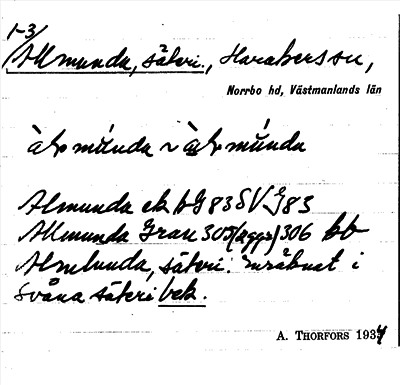 1-3/
Allmunda, säteri., Haraker sn,
Norrbo hd, Västmanlands län
Almunda ek bG 83 SV J 83
Allmunda Grau 305 (äggs) 306 bb
Almlunda, säteri. Inräknat i
Svåna säteri bek.
A. THORFORS 1934